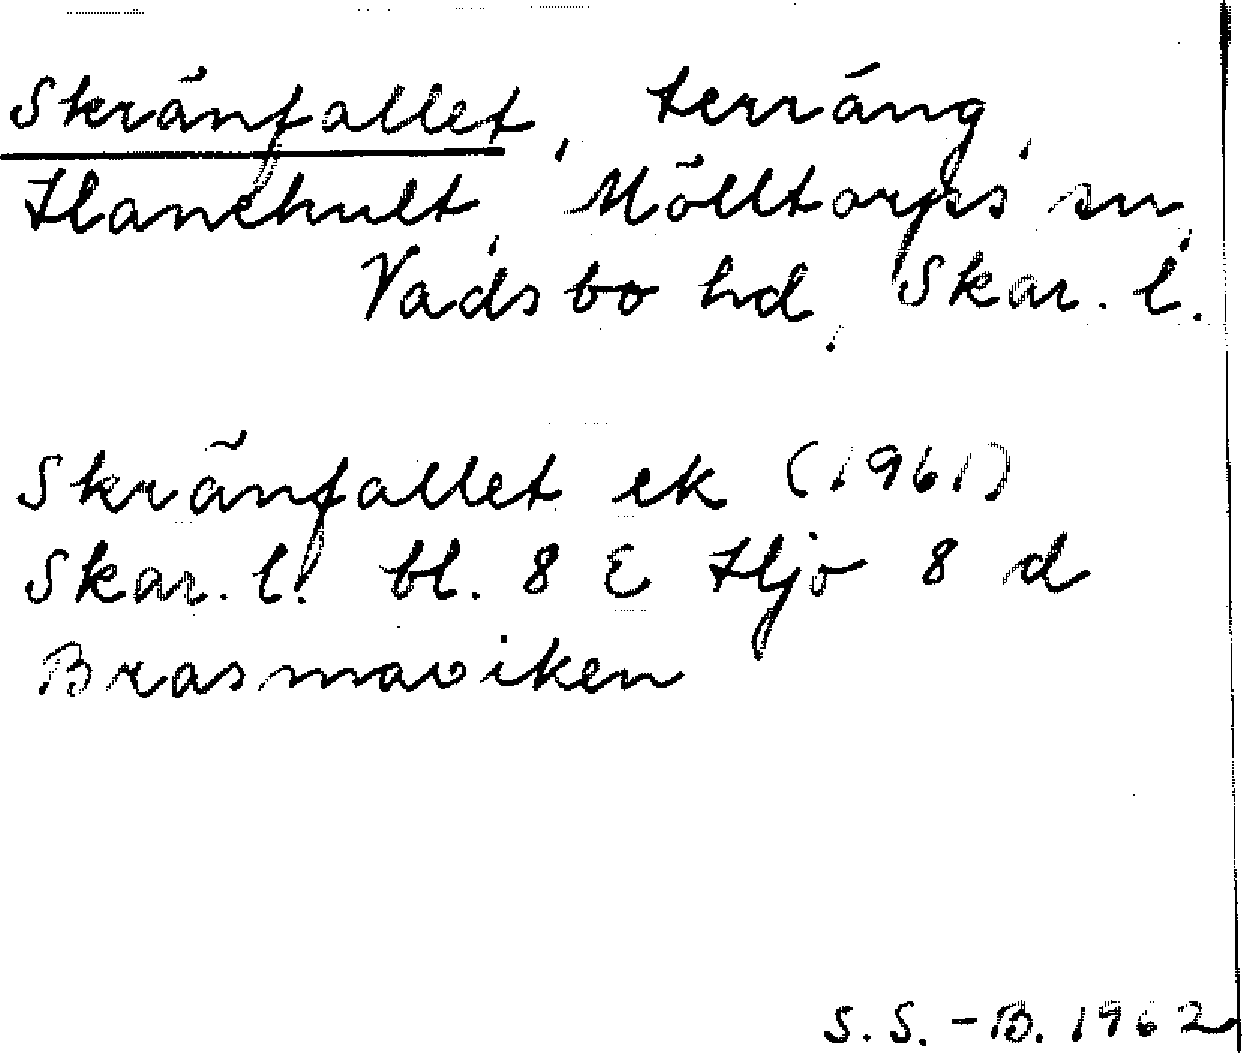 Skränfallet, terräng,
Hanehult, Mölltorps sn,
Vadsbo hd, Skar. l.
Skränfallet ek (1961)
Skar. l. bl. 8 E Hjo 8 d
Brasmaviken
S. S. - B. 1962